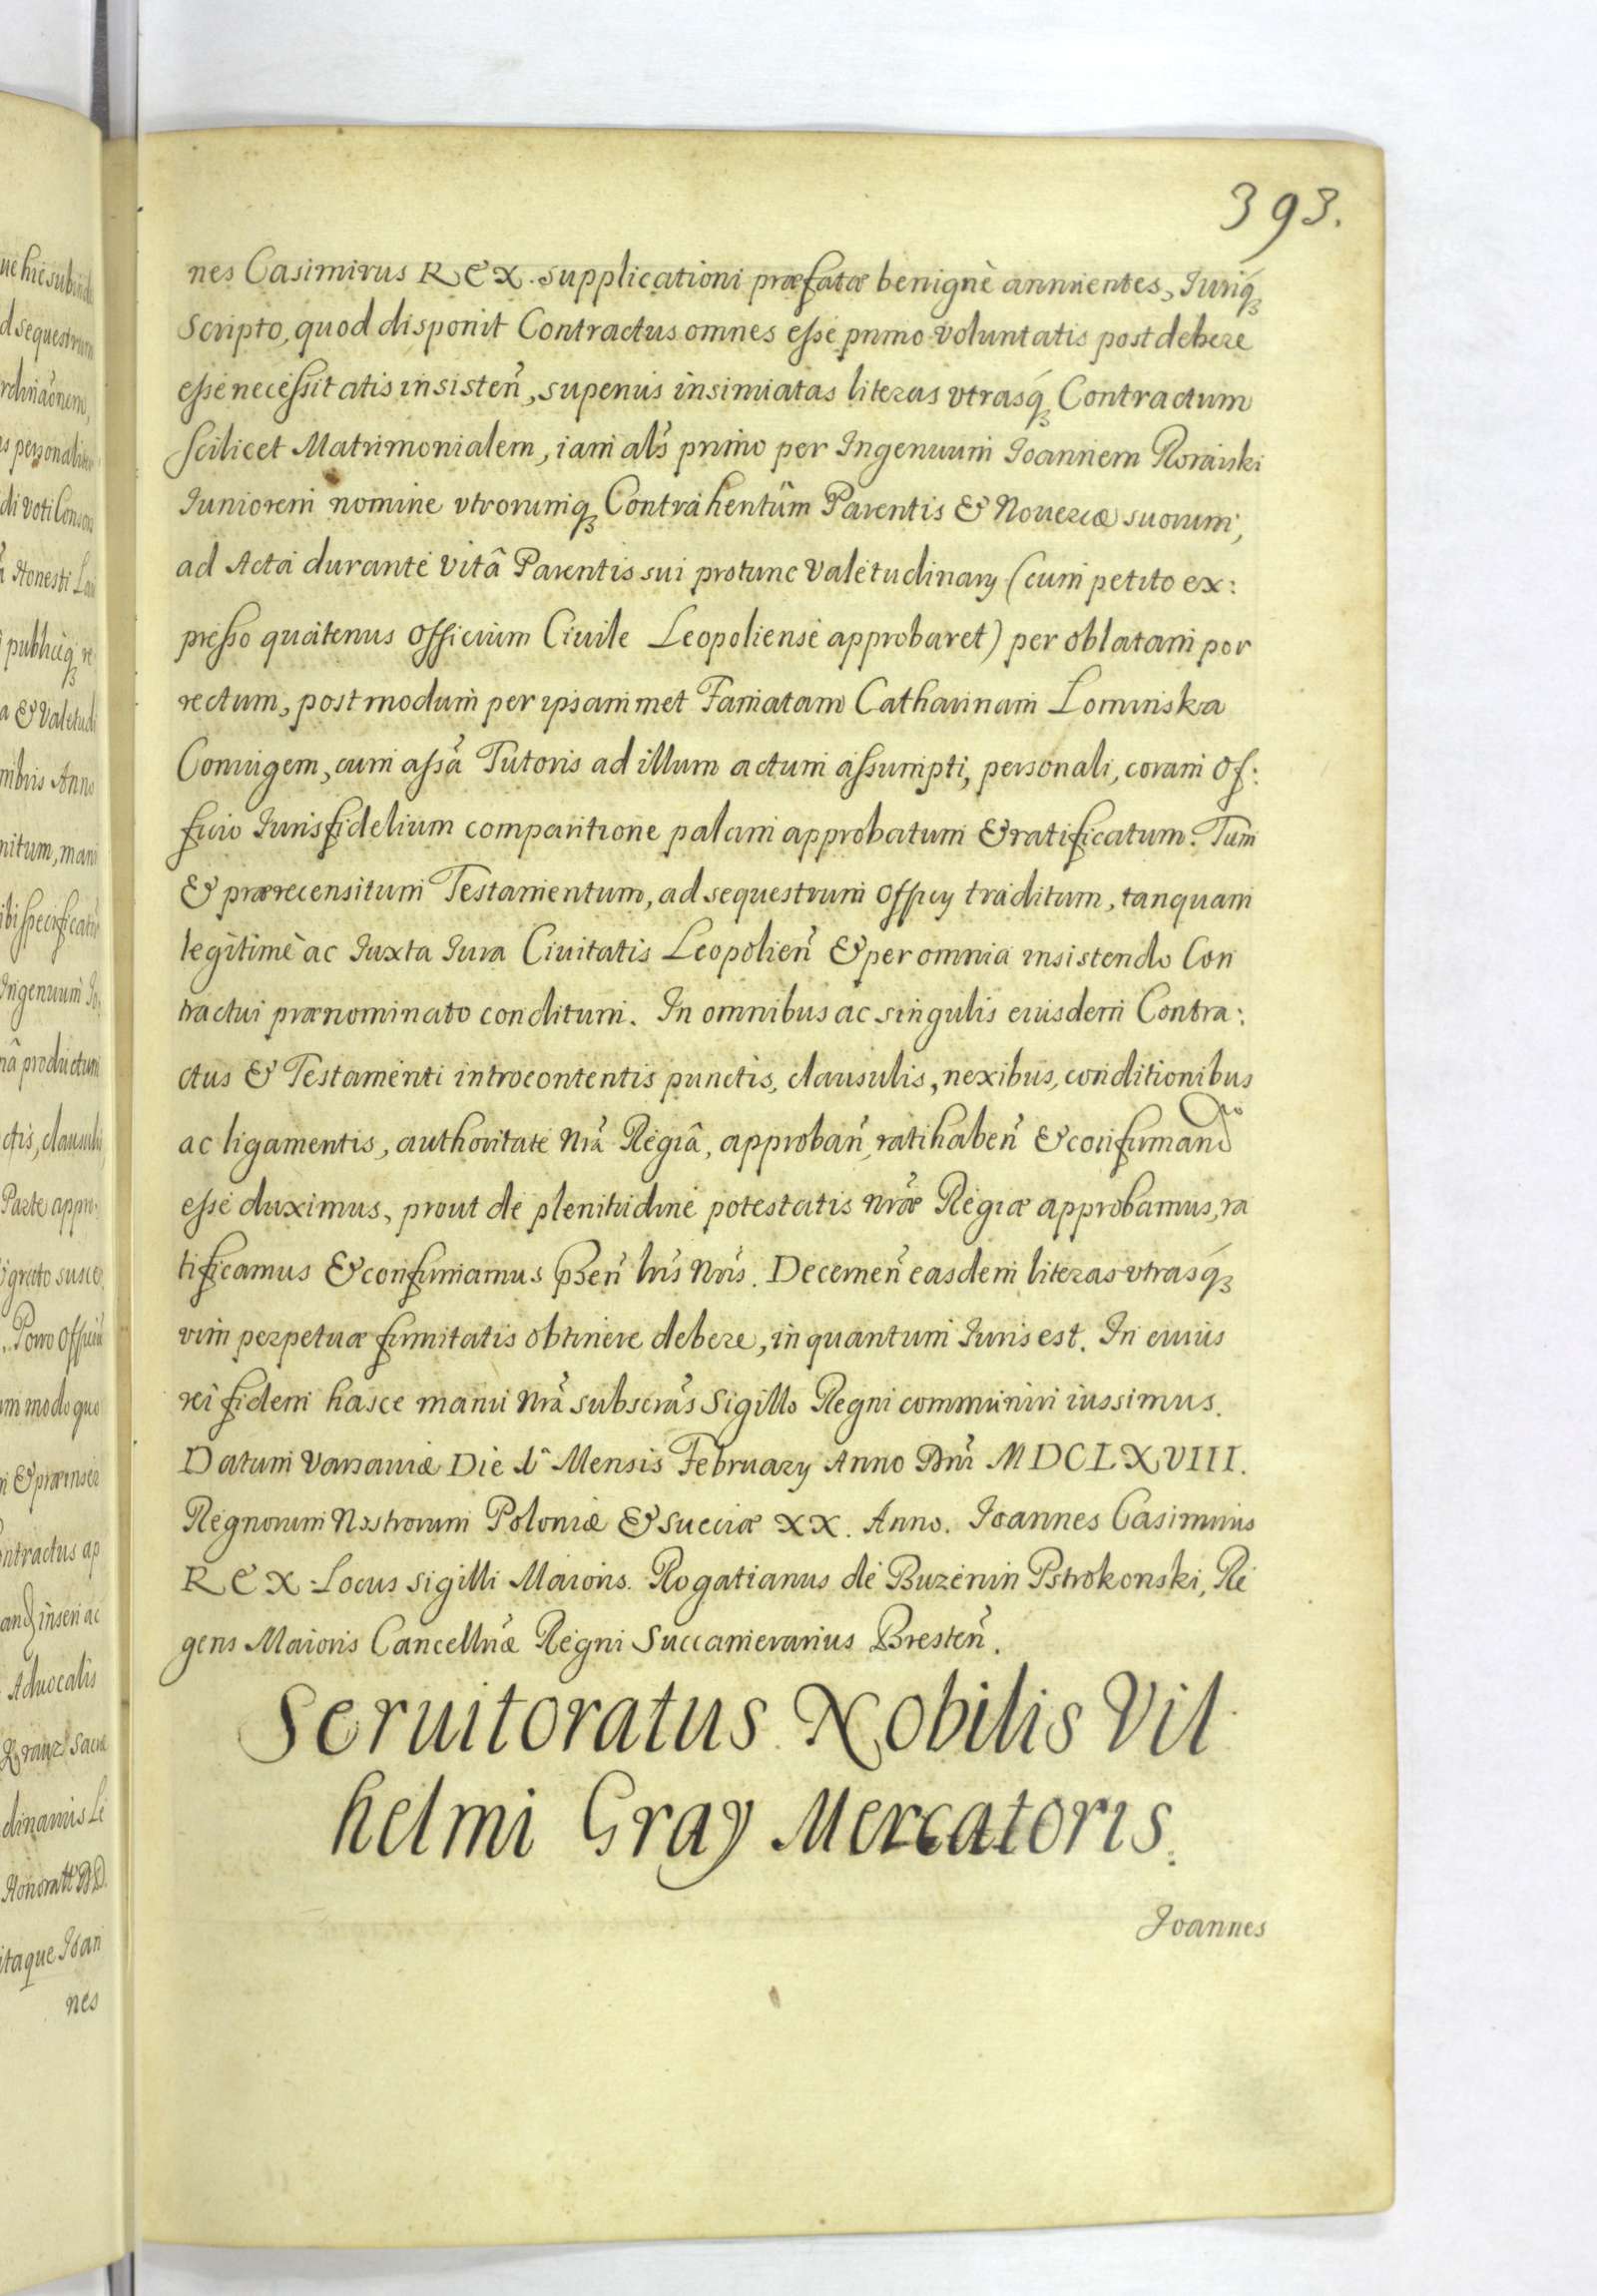 393.
nes Casimirus REX. supplicationi præfatæ benignè annuentes, Iuriq́₃
Scripto, quod disponit Contractus omnes esse primo voluntatis post debere
esse necessitatis insisteñ, superius insinuatas literas vtrasq́₃ Contractum
scilicet Matrimonialem, iam als primo per Ingenuum Joannem Roraiski
Iuniorem nomine vtrorumq₃ Contrahentûm Parentis & Nouercæ suorum,
ad Acta durante vitâ Parentis sui protunc valetudinary (cum petito ex:
presso quatenus officium Ciuile Leopoliense approbaret) per oblatam por
rectum, postmodum per ipsammet Famatam Catharinam Lominska
Coniugem, cum assã Tutoris ad illum actum assumpti, personali, coram of:
ficio Iurisfidelium comparitione palam approbatum & ratificatum. Tum
& prærecensitum Testamentum, ad sequestrum officij traditum, tanquam
legitimè ac Iuxta Iura Ciuitatis Leopolieñ & per omnia insistendo Con
tractui prænominato conditum. In omnibus ac singulis eiusdem Contra:
ctus & Testamenti introcontentis punctis, clausulis, nexibus, conditionibus
ac ligamentis, authoritate nrã Regiâ, approbañ, ratihabeñ & confirmand
esse duximus, prout de plenitudine potestatis nræ Regiæ approbamus, ra
tificamus & confirmamus p̃señ lris nris. Decerneñ easdem literas vtrasq́₃
vim perpetuæ firmitatis obtinere debere, in quantum Iuris est. In cuius
rei fidem hasce manu nrã subscras Sigillo Regni communiri iussimus.
Datum Varsauiæ Die Mensis February Anno Dñi MDCLXVIII.
Regnorum Nostrorum Poloniæ & Sueciæ XX. Anno. Joannes Casimirus
REX. Locus sigilli Maioris. Rogatianus de Buzenin Pstrokonski, Re
gens Maioris Cancellriæ Regni Succamerarius Bresteñ.
Seruitoratus Nobilis Vil
helmi Gray Mercatoris.
Joannes